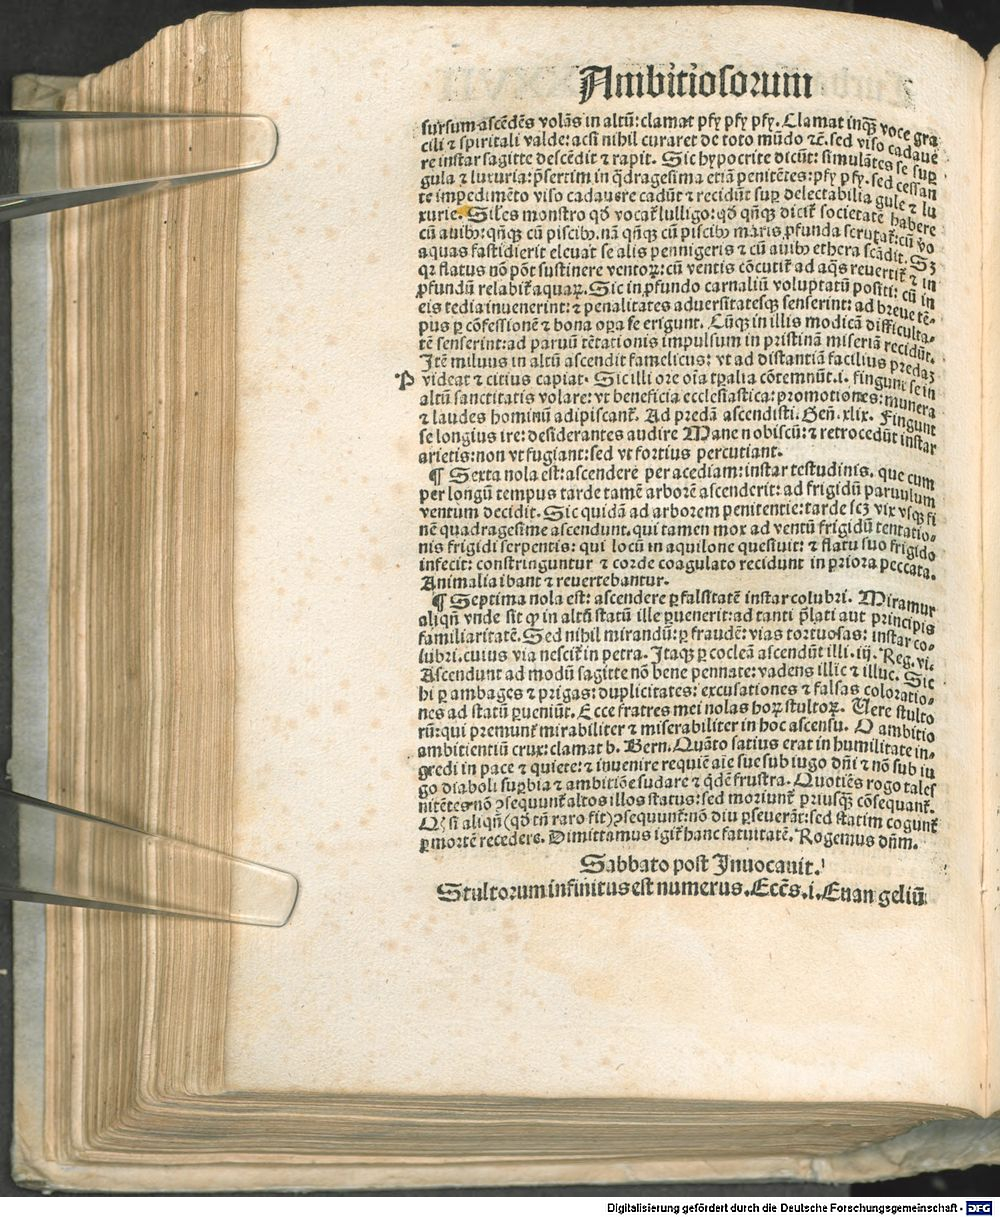 Ambitiosorum
sursum ascēdēs volās in altū: clamat pfy pfy pfy. Clamat inqꝫ voce gra
cili ⁊ spiritali valde: acsi nihil curaret de toto mūdo ⁊c̄. sed viso cadaue
re instar sagitte descēdit ⁊ rapit. Sic hypocrite dicūt: simulātes se suꝑ
gula ⁊ luxuria: p̄sertim in q̄dragesima etiā penitētes: pfy pfy. sed cessan
te impedimēto viso cadauere cadūt ⁊ recidūt suꝑ delectabilia gule ⁊ lu
xurie. Siles monstro qd̄ vocat̄ lulligo: qd̄ qn̄qꝫ dicit̄ societatē habere
cū auibꝫ: qn̄qꝫ cū piscibꝫ. nā qn̄qꝫ cū piscibꝫ maris ꝓfunda scrutat̄: cū ꝟo
aquas fastidierit eleuat se alis pennigeris ⁊ cū auibꝫ ethera scādit. Sꝫ
qꝛ flatus nō pōt sustinere ventoꝝ: cū ventis cōcutit̄ ad aq̄s reuertit̄ ⁊ in
ꝓfundū relabit̄ aquaꝝ. Sic in ꝓfundo carnaliū voluptatū positi: cū in
eis tedia inuenerint: ⁊ penalitates aduersitatesqꝫ senserint: ad breue tē-
pus ꝑ cōfessionē ⁊ bona oꝑa se erigunt. Cūqꝫ in illis modicā difficulta-
tē senserint: ad paruū tētationis impulsum in pristinā miseriā recidūt.
Itē miluus in altū ascendit famelicus: vt ad distantiā facilius predaꝫ
P videat ⁊ citius capiat. Sic illi ore oīa tꝑalia cōtemnūt .i. fingunt se in
altū sanctitatis volare: vt beneficia ecclesiastica: promotiones: munera
⁊ laudes hominū adipiscant̄. Ad predā ascendisti. Geñ. xlix. Fingunt
se longius ire: desiderantes audire Mane nobiscū: ⁊ retrocedūt instar
arietis: non vt fugiant: sed vt fortius percutiant.
¶ Sexta nola est: ascendere per acediam: instar testudinis. que cum
per longū tempus tarde tamē arborē ascenderit: ad frigidū paruulum
ventum decidit. Sic quidā ad arborem penitentie: tarde scꝫ vix vsqꝫ fi
nē quadragesime ascendunt. qui tamen mox ad ventū frigidū tentatio-
nis frigidi serpentis: qui locū in aquilone quesiuit: ⁊ flatu suo frigido
infecit: constringuntur ⁊ corde coagulato recidunt in priora peccata.
Animalia ibant ⁊ reuertebantur.
¶ Septima nola est: ascendere ꝑ falsitatē instar colubri. Miramur
aliqn̄ vnde sit ꝙ in altū statū ille ꝑuenerit: ad tanti p̄lati aut principis
familiaritatē. Sed nihil mirandū: ꝑ fraudē: vias tortuosas: instar co-
lubri. cuius via nescit̄ in petra. Itaqꝫ ꝑ cocleā ascendūt illi. iij. Reg. vi.
Ascendunt ad modū sagitte nō bene pennate: vadens illic ⁊ illuc. Sic
hi ꝑ ambages ⁊ prigas: duplicitates: excusationes ⁊ falsas coloratio-
nes ad statū ꝑueniūt. Ecce fratres mei nolas hoꝝ stultoꝝ. Uere stulto
rū: qui premunt̄ mirabiliter ⁊ miserabiliter in hoc ascensu. O ambitio
ambitientiū crux: clamat b. Bern. Quāto satius erat in humilitate in-
gredi in pace ⁊ quiete: ⁊ inuenire requiē aīe sue sub iugo dn̄i ⁊ nō sub iu
go diaboli suꝑbia ⁊ ambitiōe sudare ⁊ q̄dē frustra. Quotiēs rogo tales
nitētes nō ꝯsequunt̄ altos illos status: sed moriunt̄ priusqꝫ cōsequant̄.
Qꝫ si aliqn̄ (qd̄ tn̄ raro fit) ꝯsequunt̄: nō diu ꝑseuerāt: sed statim cogunt̄
ꝑ mortē recedere. Dimittamus igit̄ hanc fatuitatē. Rogemus dn̄m.
Sabbato post Inuocauit.
Stultorum infinitus est numerus. Ecc̄s. i. Euangeliū
Digitalisierung gefördert durch die Deutsche Forschungsgemeinschaft - DFG